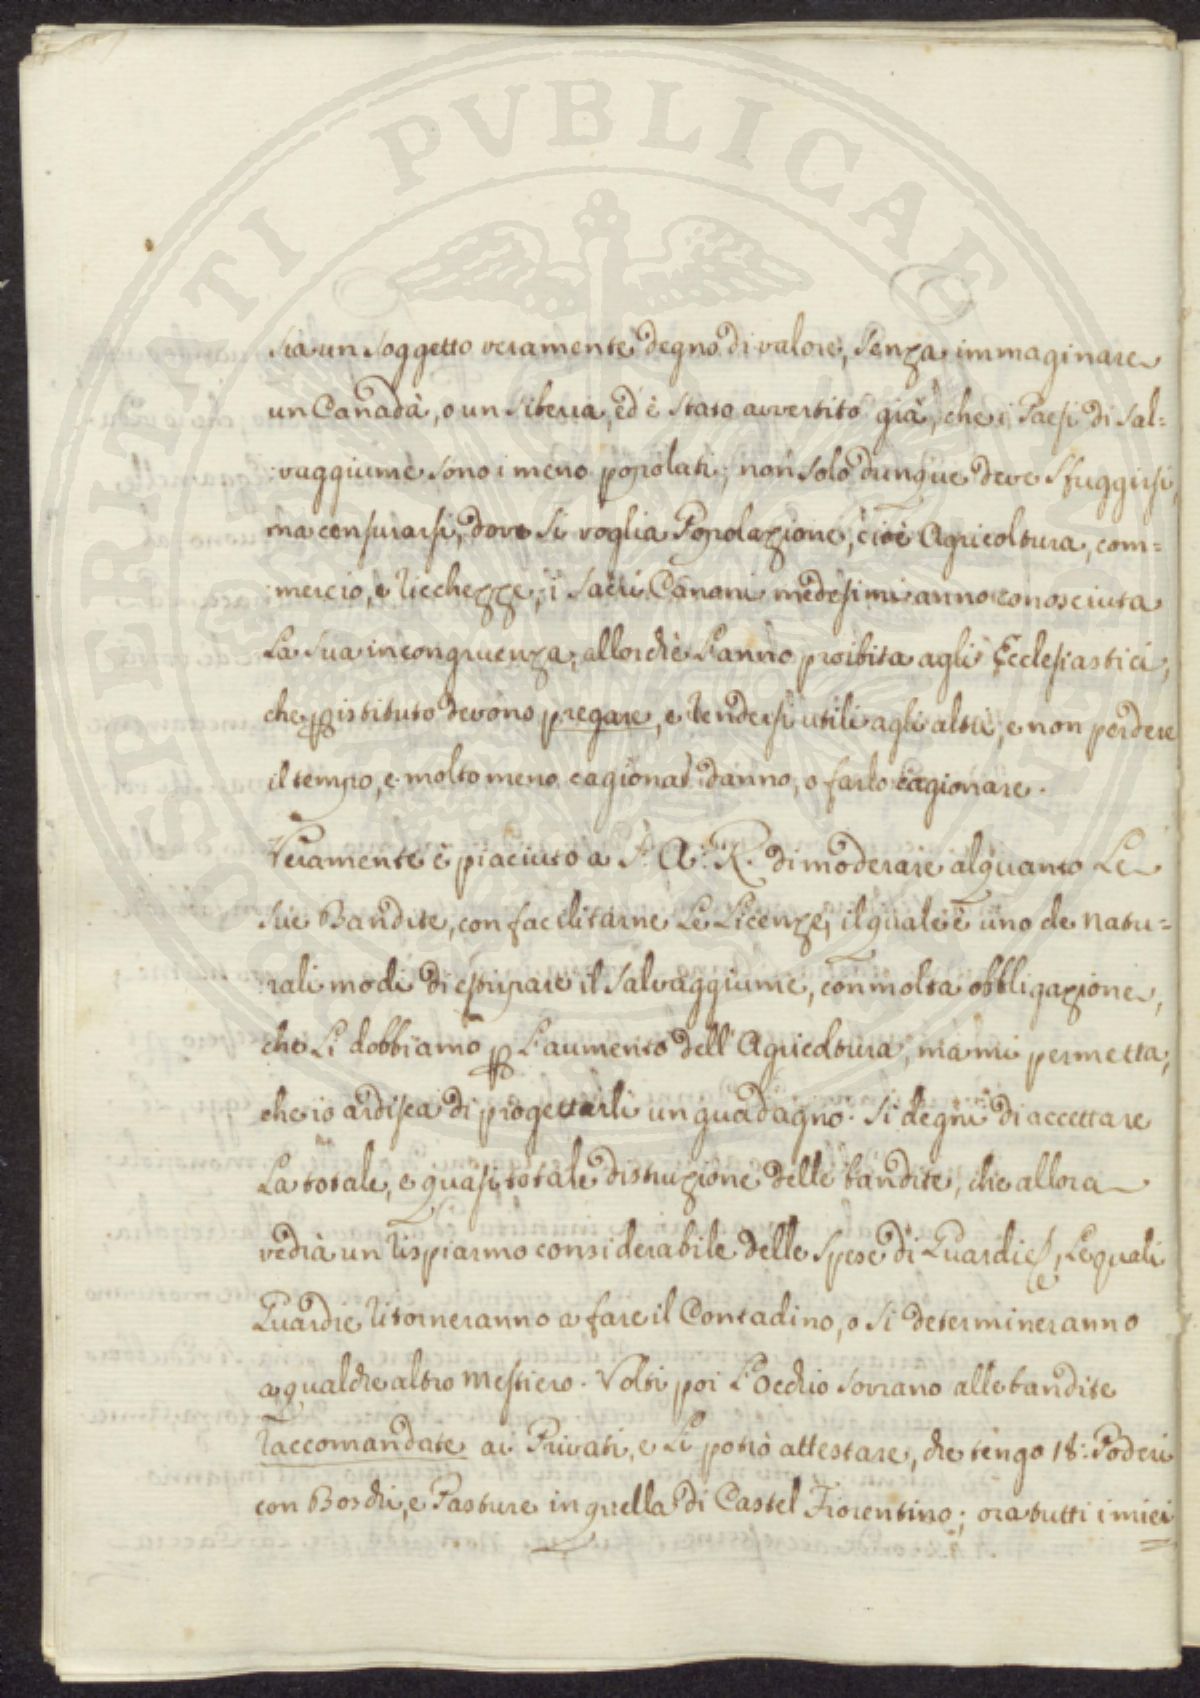 PROSPERITATI PVBLICAE
sia un soggetto veramente degno di valore, senza immaginare
un Canadà, o un Siberia, ed è stato avvertito già, che i Paesi di Sal=
:vaggiume sono i meno popolati; non solo dunque deve sfuggirsi,
ma censurarsi, dove si voglia Popolazione, cioè Agricoltura, com=
:mercio, e ricchezze; i Sacri Canoni medesimi anno conosciuta
La sua incongruenza, allorchè L'anno proibita agli Ecclesiastici,
che ꝑ istituto devono pregare, e rendersi utili agli altri, e non perdere
il tempo, e molto meno cagionar danno, o farlo cagionare.
Veramente è piaciuto a S. A. R. di moderare alquanto Le
sue Bandite, con facilitarne Le Licenze, il quale è uno de natu=
:rali modi di estirpare il salvaggiume, con molta obbligazione,
che Li dobbiamo ꝑ L'aumento dell'Agricoltura, ma mi permetta,
che io ardisca di progettarli un guadagno. Si degni di accettare
La totale, e quasi totale distruzione delle bandite, che allora
vedrà un risparmo considerabile delle spese di Guardie, Le quali
Guardie ritorneranno a fare il Contadino, o si determineranno
a qualche altro mestiero. Volti poi L'occhio sovrano alle bandite
raccomandate ai Privati, e Li potrò attestare, che tengo 18: Poderi
con Boschi, e Pasture in quella di Castel Fiorentino; ora tutti i miei